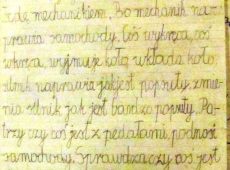 zdę mechanikiem. Bo mechanik nap-
prawia samochody. Coś wykrzca, coś
wkrzca, wyjmuje koła wkłada koło,
silnik naprawia jak jest popsuty, zmie-
nia silnik jak jest bardzo popsuty. Pa-
trzy czy coś jest z pedałami podnosi
samochody. Sprawdza czy coś jest